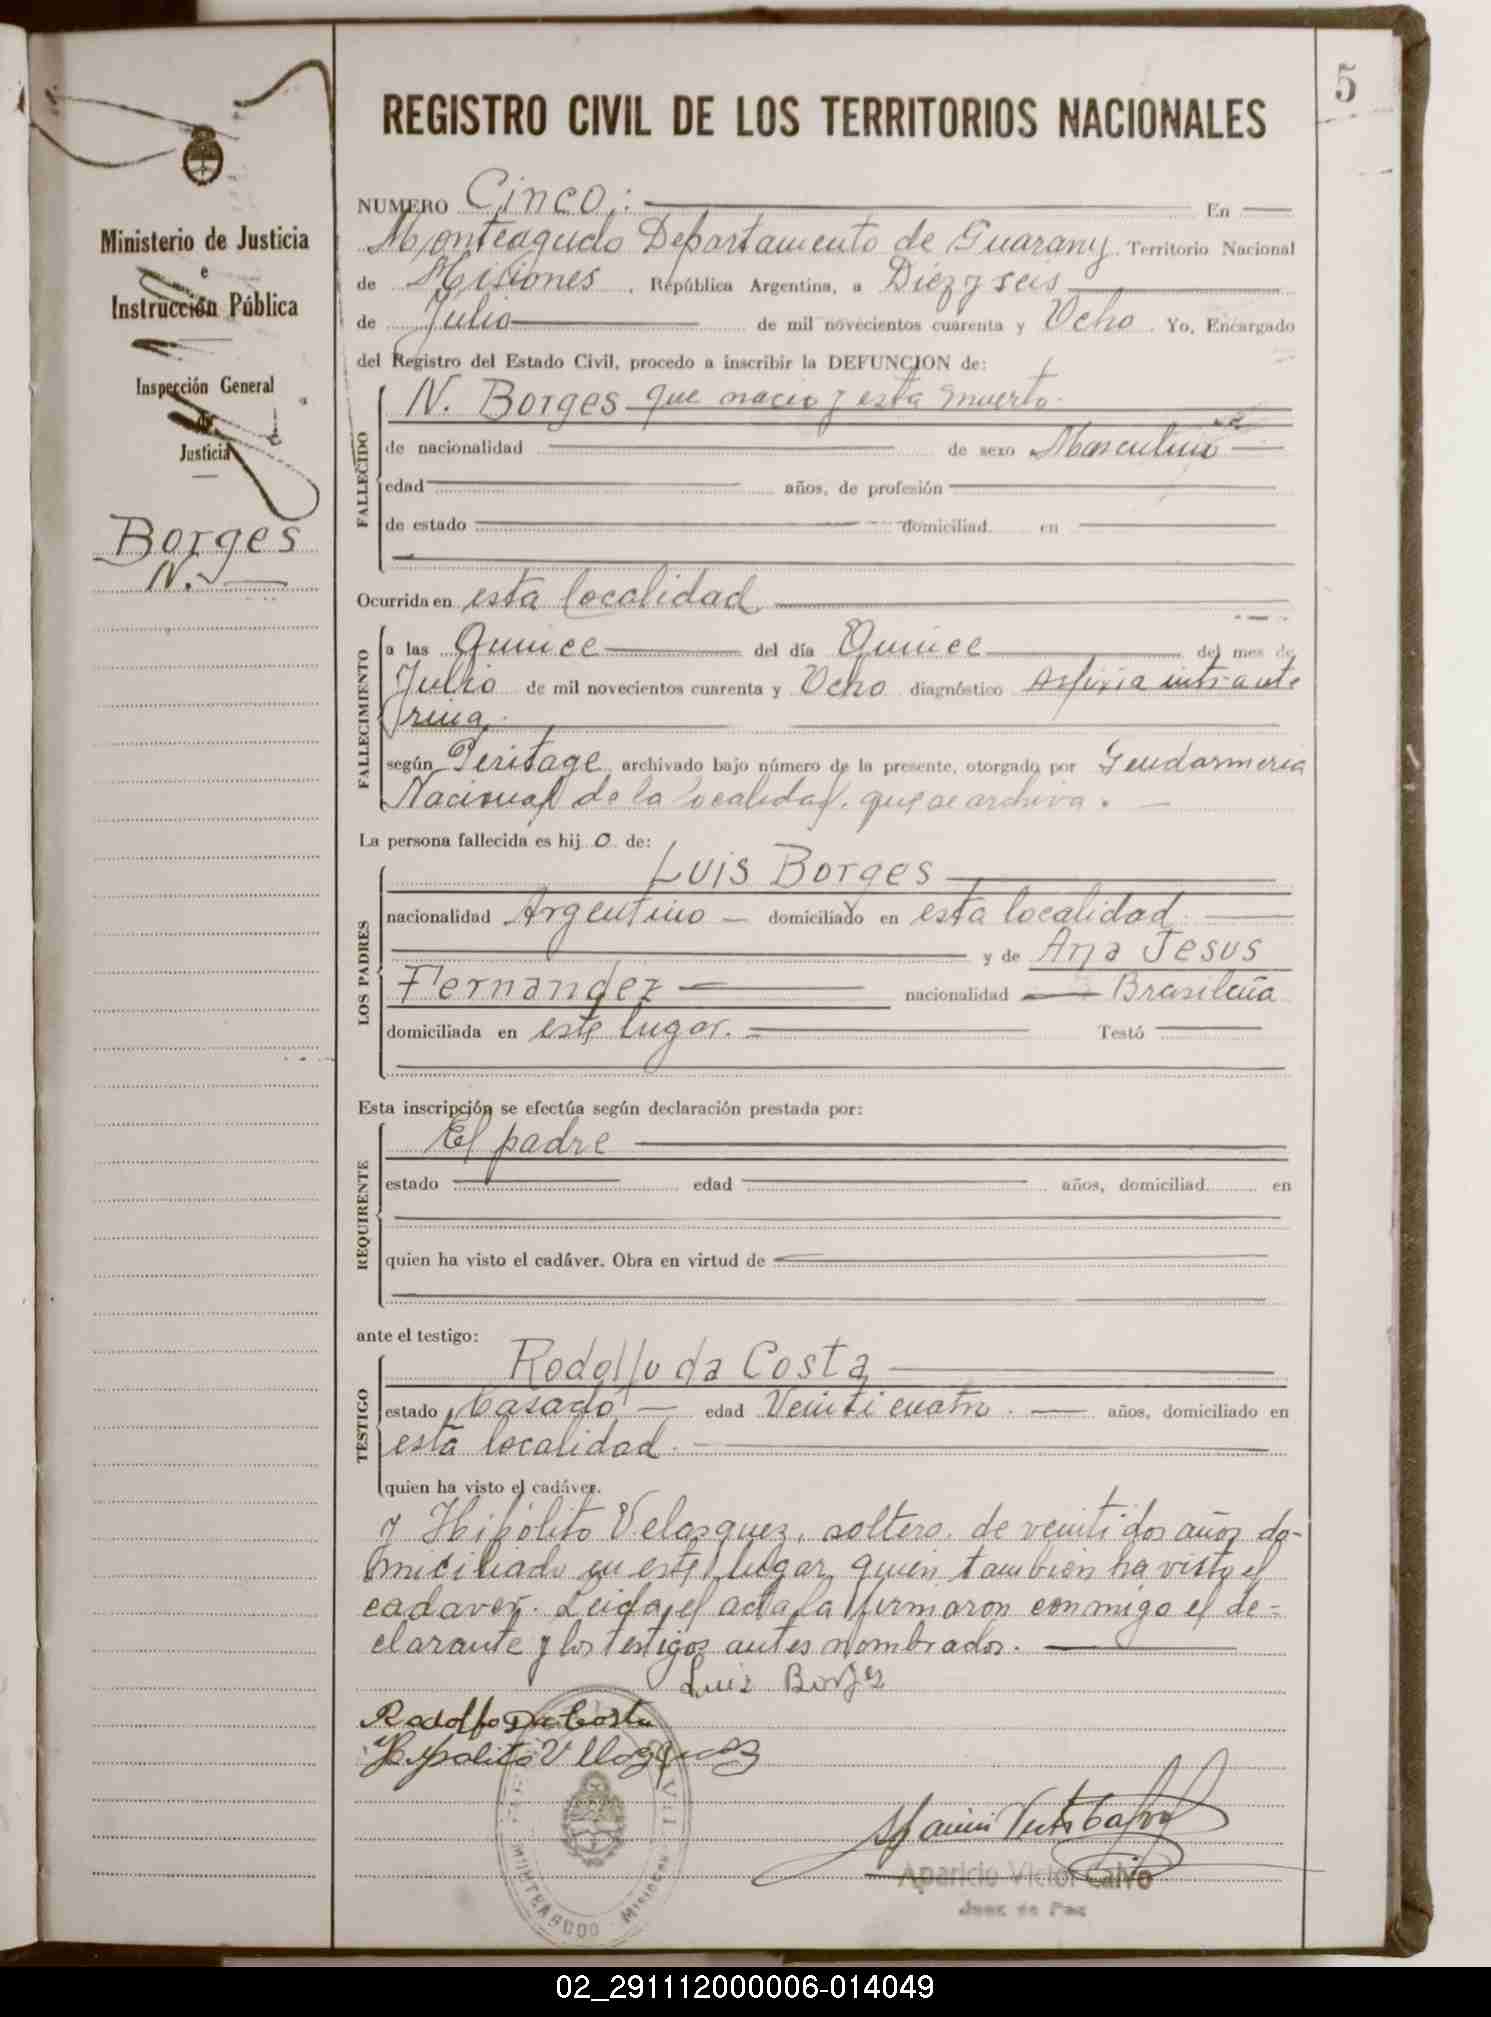 5
REGISTRO CIVIL DE LOS TERRITORIOS NACIONALES
Ministerio de Justicia
e
Instrucción Pública
Inspección General
de
Justicia
Borges
N.
NUMERO Cinco: En
Monteagudo Departamento de Guarany. Territorio Nacional
de Misiones, República Argentina, a Diez y seis
de Julio de mil novecientos cuarenta y Ocho. Yo, Encargado
del Registro del Estado Civil, procedo a inscribir la DEFUNCION de:
FALLECIDO
N. Borges que nacio y esta muerto.
de nacionalidad de sexo Masculino
edad años, de profesión
de estado domiciliad en
Ocurrida en esta localidad
FALLECIMIENTO
a las Quince del día Quince del mes de
Julio de mil novecientos cuarenta y Ocho diagnóstico Asfixia intra ute
rina.
según Peritage archivado bajo número de la presente, otorgado por Gendarmeria
Nacional de la localidad, que se archiva.
La persona fallecida es hij o de:
LOS PADRES
Luis Borges
nacionalidad Argentino domiciliado en esta localidad
y de Ana Jesus
Fernandez nacionalidad Brasileña
domiciliada en este lugar. Testó
Esta inscripción se efectúa según declaración prestada por:
REQUIRENTE
El padre
estado edad años, domiciliad en
quien ha visto el cadáver. Obra en virtud de
ante el testigo:
TESTIGO
Rodolfo da Costa
estado Casado edad Veinti cuatro años, domiciliado en
esta localidad.
quien ha visto el cadáver.
y Hipólito Velasquez, soltero, de veinti dos años do-
miciliado en este lugar quien tambien ha visto el
cadaver. Leida el acta la firmaron conmigo el de-
clarante y los testigos antes nombrados.
Luis Borges
Rodolfo Da Costa
Hipolito Vllasquez
Aparicio Victor Calvo
Juez de Paz
MONTEAGUDO MISIONES
02_291112000006-014049